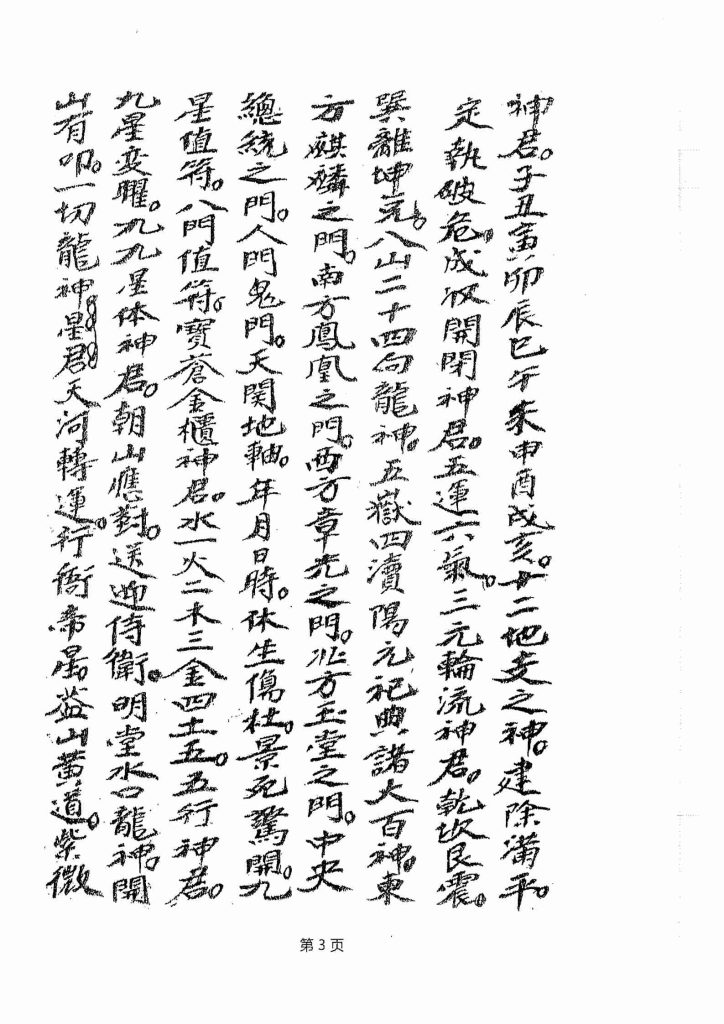 神君。子丑寅卯辰巳午未申酉戌亥。十二地支之神。建除满平。
定執破危。成収開閉神君。五運六氣。三元輪流神君。乾坎艮震。
巽離坤兌。八山二十四向龍神。五嶽四瀆陽元祀典諸大百神。東
方麒麟之門。南方鳳凰之門。西方章光之門。北方玉堂之門。中央
總統之門。人門鬼門。天関地軸。年月日時。休生傷杜。景死驚開。九
星值符。八門值符。寶蒼金櫃神君。水一火二木三金四土五。五行神君。
九星変曜。九九星体神君。朝山應對。送迎侍衛。明堂水口龍神。開
山有叩。一切龍神星君。天河轉運。行衙帝星。盖山黄道。紫微
第3页